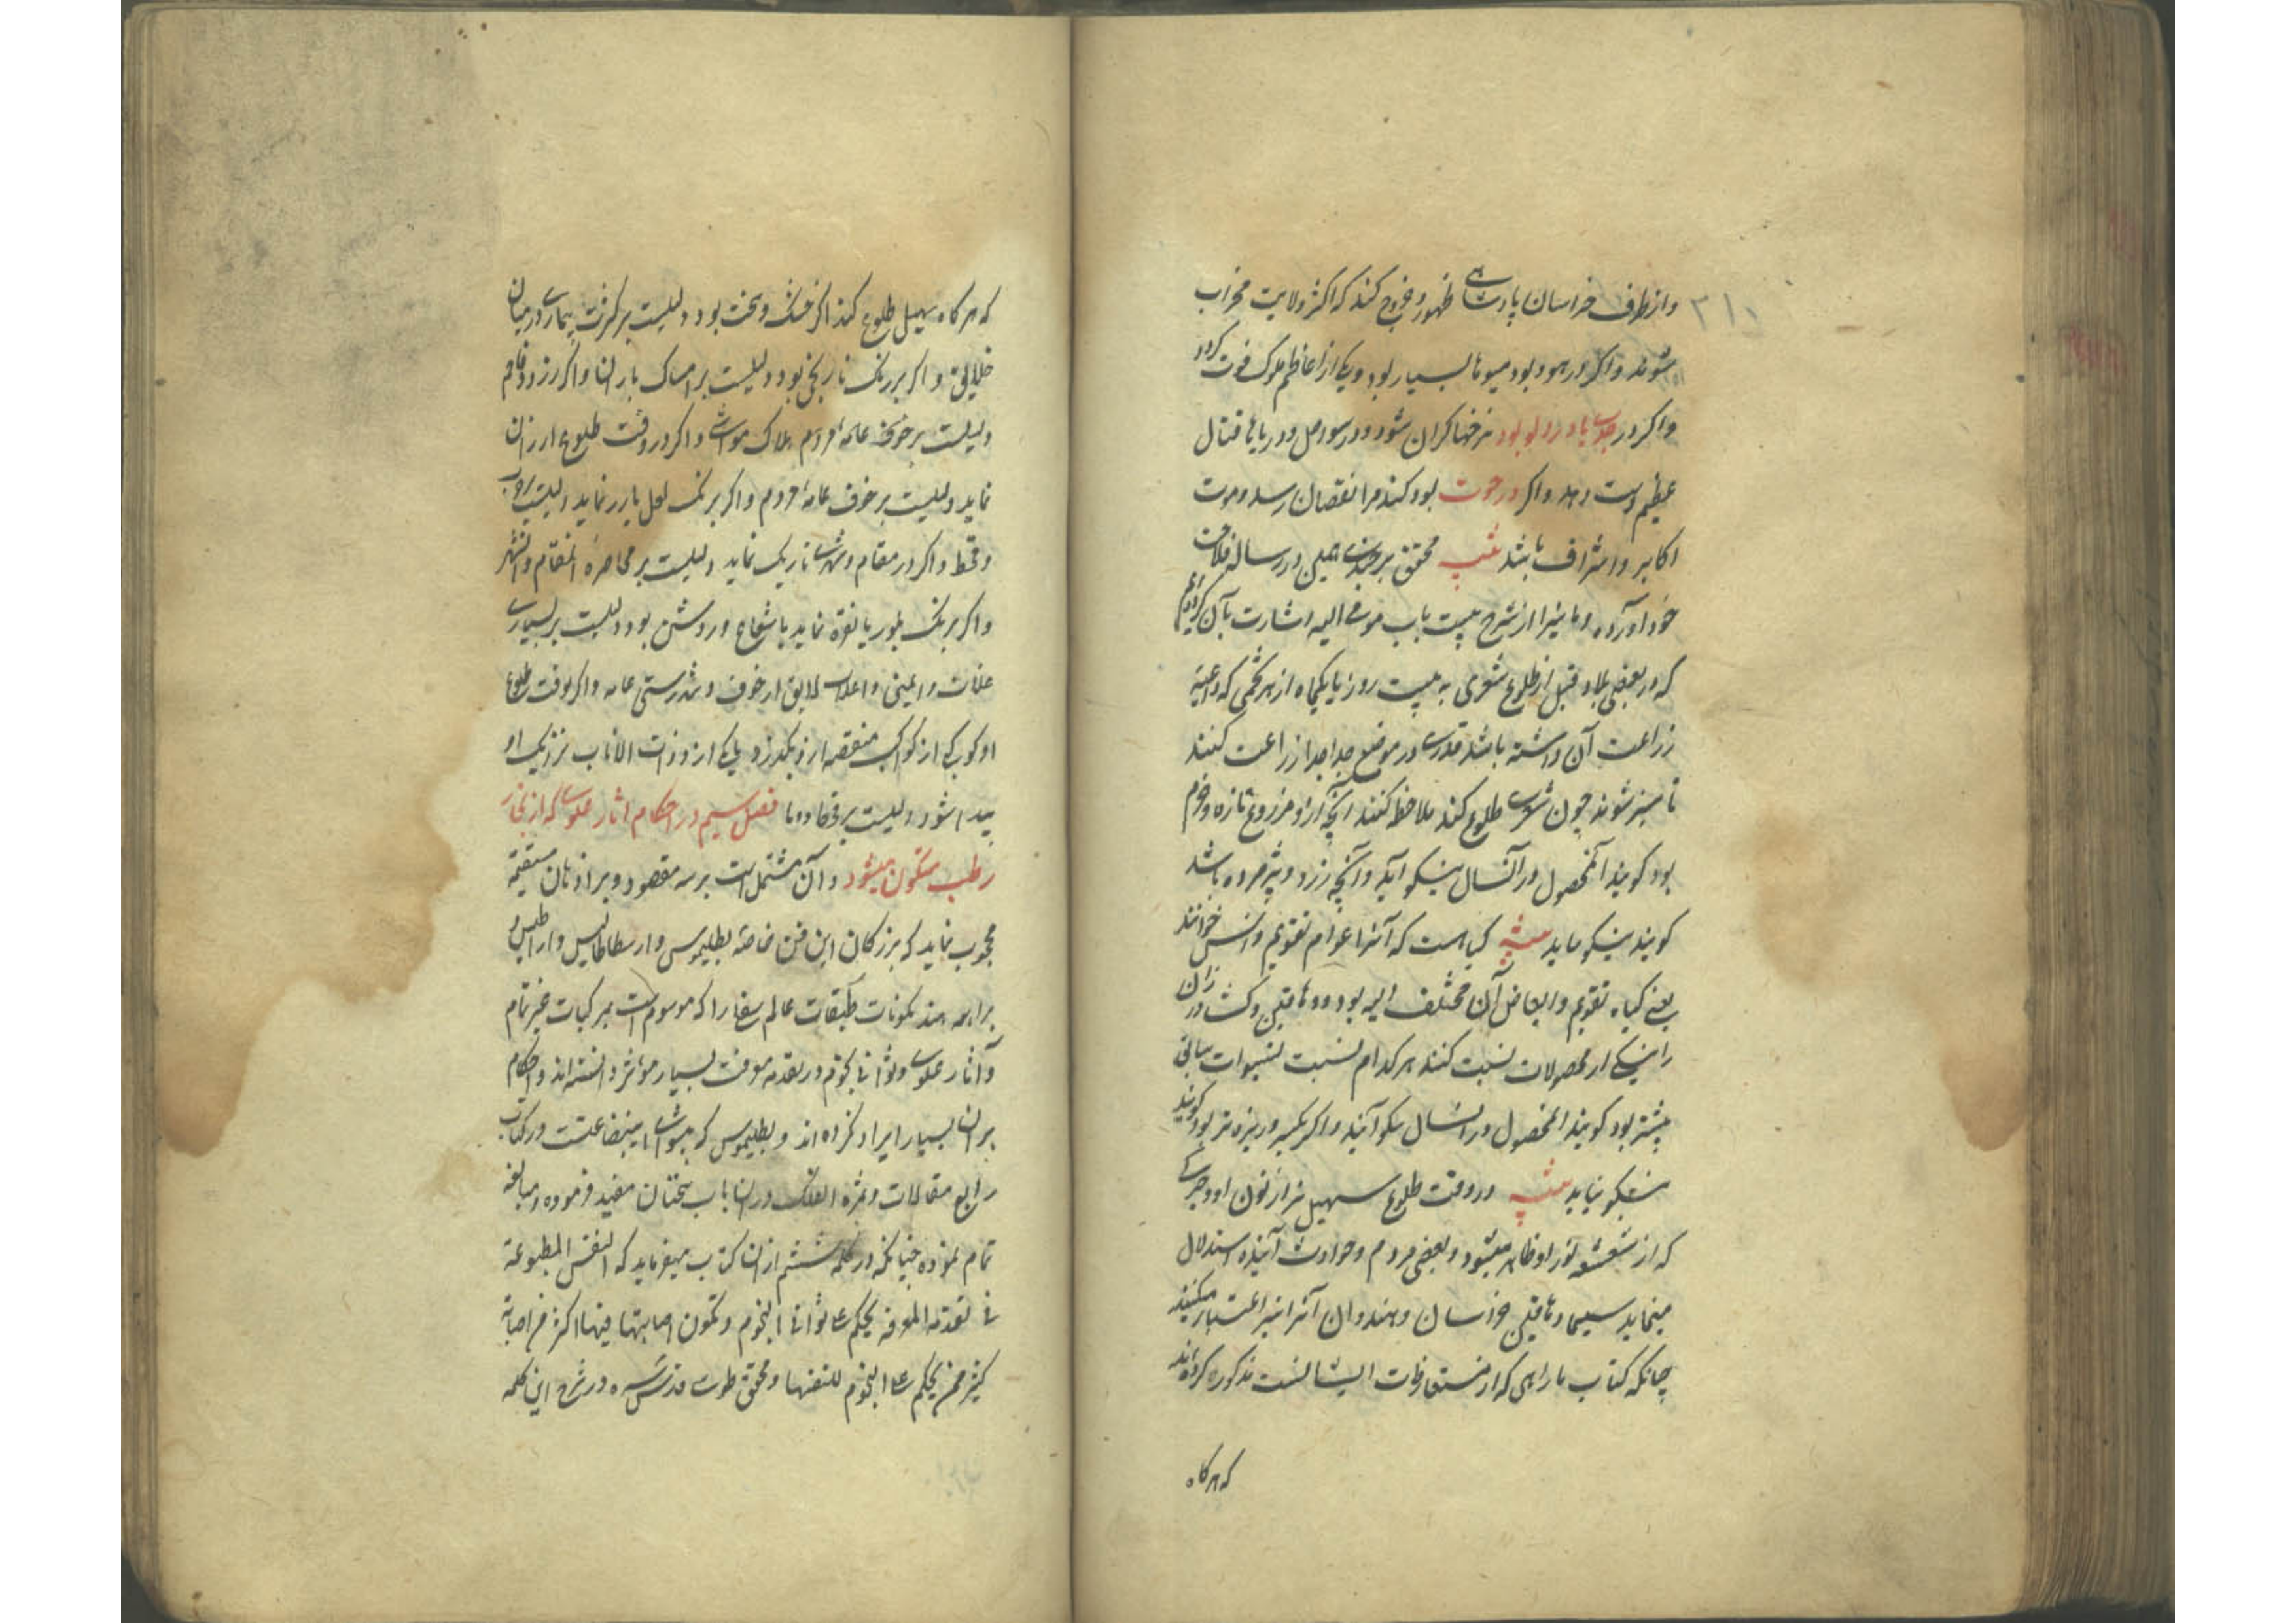 ۲۱۰
واز طرف خراسان پادشاهی ظهور و خروج کند که اکثر ولایت خراب
شوند واکر در بود میوها بسیار بود ویکی از اعاظم ملوک فوت کردد
واکر در جدی یا در دلو بود نرخها کران شود ودر سواحل ودریاها قتال
عظیم دست دهد واکر در حوت بود کندم را نقصان رسد وموت
اکابر واشراف باشد تنبیه محقق برجندی همین در رساله فلاحت
خود آورده وما نیز در شرح بیست باب مومی الیه اشارت بآن کرده‌ایم
که در بعضی بلاد قبل از طلوع شعری به بیست روز یا یکماه از هر تخمی که داعیه
زراعت آن داشته باشد قدری در موضع جدا جدا زراعت کنند
تا سبز شوند چون شعری طلوع کند ملاحظه کنند آنچه از او مزروع تازه وخرم
بود کویند آنمحصول در آنسال نیکو آید وآنچه زرد وپژمرده باشد
کویند نیکو نیاید تنبیه کیاهست که آنرا عوام تقویم خوانند
یعنی کیاه تقویم آن مختلف بود ودهاقین
را بیکی از محصولات نسبت کنند هر کدام نسبت بسنوات سابق
بیشتر بود کویند آنمحصول در آنسال نیکو آید واکر کمتر وریزه‌تر بود کویند
نیکو نیاید تنبیه در وقت طلوع سهیل نیز از لون او وچیزی
که از شعشعه نور او ظاهر میشود وبعضی مردم وحوادث آینده استدلال
مینماید سیما دهاقین خراسان وهندوان آنرا نیز اعتبار میکنند
چنانکه کتاب باراهی که از متعارفات ایشانست مذکور کرده‌اند
که هرکاه
که هرکاه سهیل طلوع کند اکر خشک وسخت بود دلیلست بر کثرت بیماری در میان
خلایق واکر بر رنک نارنجی بود دلیلست بر امساک باران واکر زرد وفام
دلیلست بر خوف عامه مردم وهلاک مواشی واکر در وقت طلوع لرزان
نماید دلیلست بر خوف عامه مردم واکر برنک لعل یا زر نماید دلیلست
وقحط واکر در مقام وشهری تاریک نماید دلیلست بر محاصره آنمقام وآنشهر
واکر برنک بلور یا نقره نماید با شعاع وروشن بود دلیلست بر بسیاری
غلات وایمنی خلایق از خوف وتندرستی عامه واکر بوقت طلوع
او کوکبی از کواکب منقضه از او بکذرد یا یکی از ذوات الاذناب نزدیک او
پیدا شود دلیلست بر وقحا ووبا فصل سیم در احکام آثار علوی که از بخار
رطب متکون میشود وآن مشتمل است بر سه مقصود وبر اذهان مستقیمه
محجوب نماید که بزرکان این فن خاصه بطلیموس وارسطاطالیس
براهمه هند تکونات طبقات عالم سفلی را که موسوم است بمرکبات غیر تام
وآثار علوی وثوانی نجوم در تقدمه معرفت بسیار مؤثر دانسته‌اند واحکام
بران بسیار ایراد کرده‌اند وبطلیموس که پیشوای این صناعتست در کتاب
رابع مقالات وثمره الفلک در آن باب سخنان مفید فرموده ومبالغه
تمام نموده چنانکه در کلمه ششم از آن کتاب میفرماید که النفس المطبوعة
فی تقدمة المعرفة یحکم علی ثوانی النجوم وتکون اصابتها فیها اکثر من اصابة
کثیر ممن یحکم علی النجوم انفسها ومحقق طوسی قدس سره در شرح این کلمه